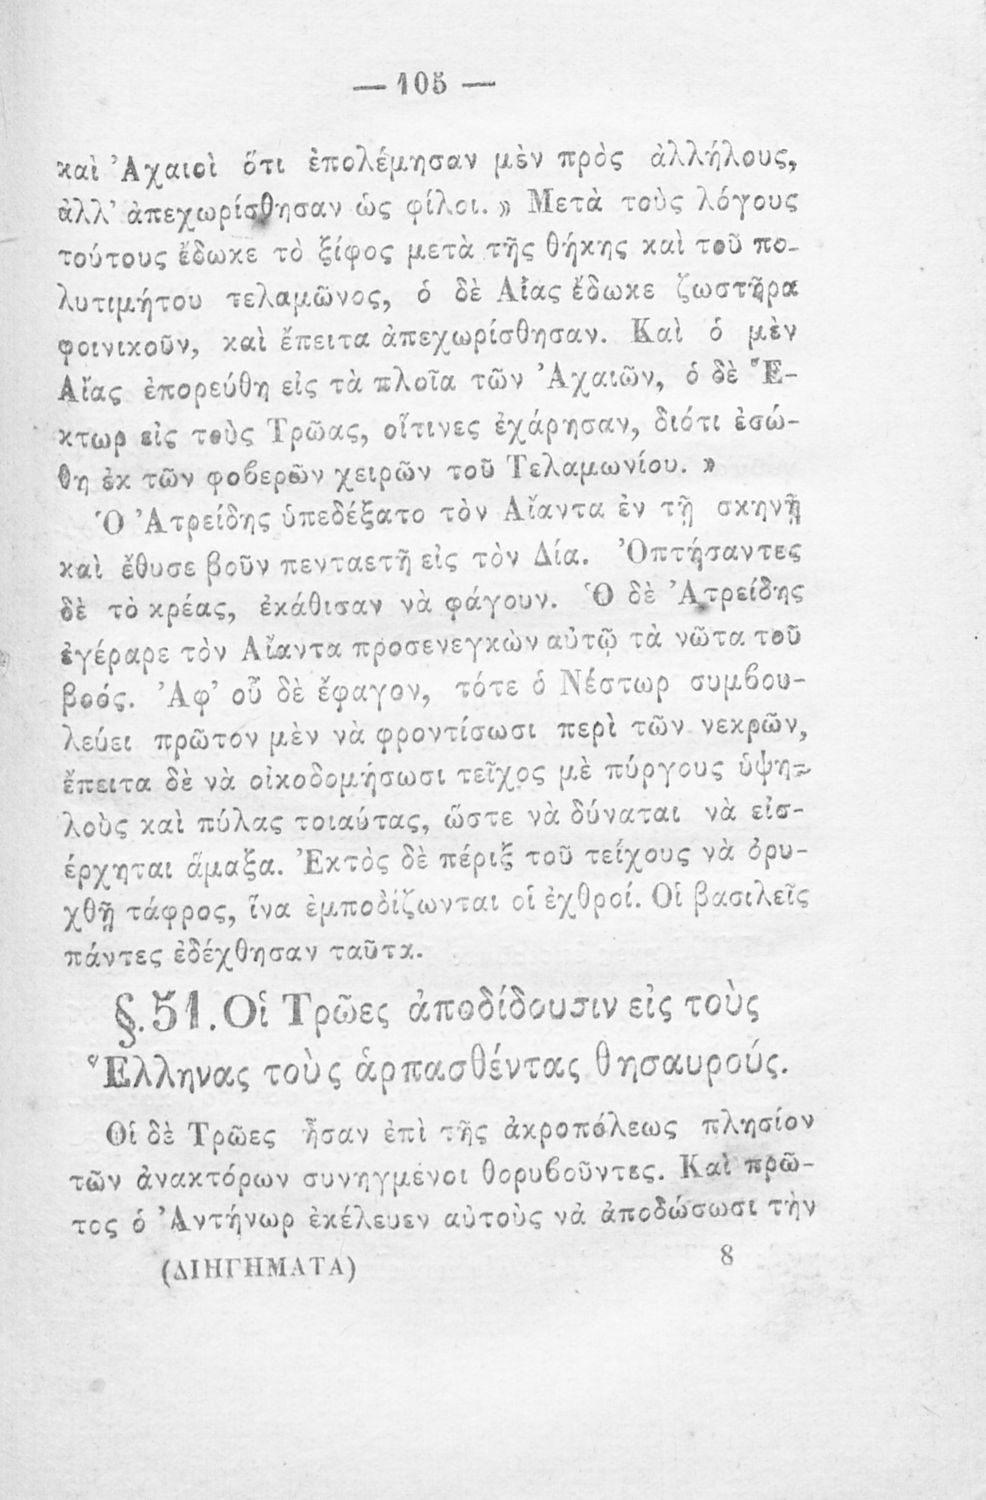 — 105 —
καὶ Ἀχαιοὶ ὅτι ἐπολέμησαν μὲν πρὸς ἀλλήλους,
ἀλλ' ἀπεχωρίσθησαν ὡς φίλοι. » Μετὰ τοὺς λόγους
τούτους ἔδωκε τὸ ξίφος μετὰ τῆς θήκης καὶ τοῦ πο-
λυτιμήτου τελαμῶνος, ὁ δὲ Αἴας ἔδωκε ζωστῆρα
φοινικοῦν, καὶ ἔπειτα ἀπεχωρίσθησαν. Καὶ ὁ μὲν
Αἴας ἐπορεύθη εἰς τὰ πλοῖα τῶν Ἀχαιῶν, ὁ δὲ Ἕ-
κτωρ εἰς τοὺς Τρῶας, οἵτινες ἐχάρησαν, διότι ἐσώ-
θη ἐκ τῶν φοβερῶν χειρῶν τοῦ Τελαμωνίου. »
Ὁ Ἀτρείδης ὑπεδέξατο τὸν Αἴαντα ἐν τῇ σκηνῇ
καὶ ἔθυσε βοῦν πενταετῆ εἰς τὸν Δία. Ὀπτήσαντες
δὲ τὸ κρέας, ἐκάθισαν νὰ φάγουν. Ὁ δὲ Ἀτρείδης
ἐγέραρε τὸν Αἴαντα προσενεγκὼν αὐτῷ τὰ νῶτα τοῦ
βοός. Ἀφ' οὗ δὲ ἔφαγον, τότε ὁ Νέστωρ συμβου-
λεύει πρῶτον μὲν νὰ φροντίσωσι περὶ τῶν νεκρῶν,
ἔπειτα δὲ νὰ οἰκοδομήσωσι τεῖχος μὲ πύργους ὑψη-
λοὺς καὶ πύλας τοιαύτας, ὥστε νὰ δύναται νὰ εἰσ-
έρχηται ἅμαξα. Ἐκτὸς δὲ πέριξ τοῦ τείχους νὰ ὀρυ-
χθῇ τάφρος, ἵνα ἐμποδίζωνται οἱ ἐχθροί. Οἱ βασιλεῖς
πάντες ἐδέχθησαν ταῦτα.
§. 51. Οἱ Τρῶες ἀποδίδουσιν εἰς τοὺς
Ἕλληνας τοὺς ἁρπασθέντας θησαυρούς.
Οἱ δὲ Τρῶες ἦσαν ἐπὶ τῆς ἀκροπόλεως πλησίον
τῶν ἀνακτόρων συνηγμένοι θορυβοῦντες. Καὶ πρῶ-
τος ὁ Ἀντήνωρ ἐκέλευεν αὐτοὺς νὰ ἀποδώσωσι τὴν
(ΔΙΗΓΗΜΑΤΑ) 8